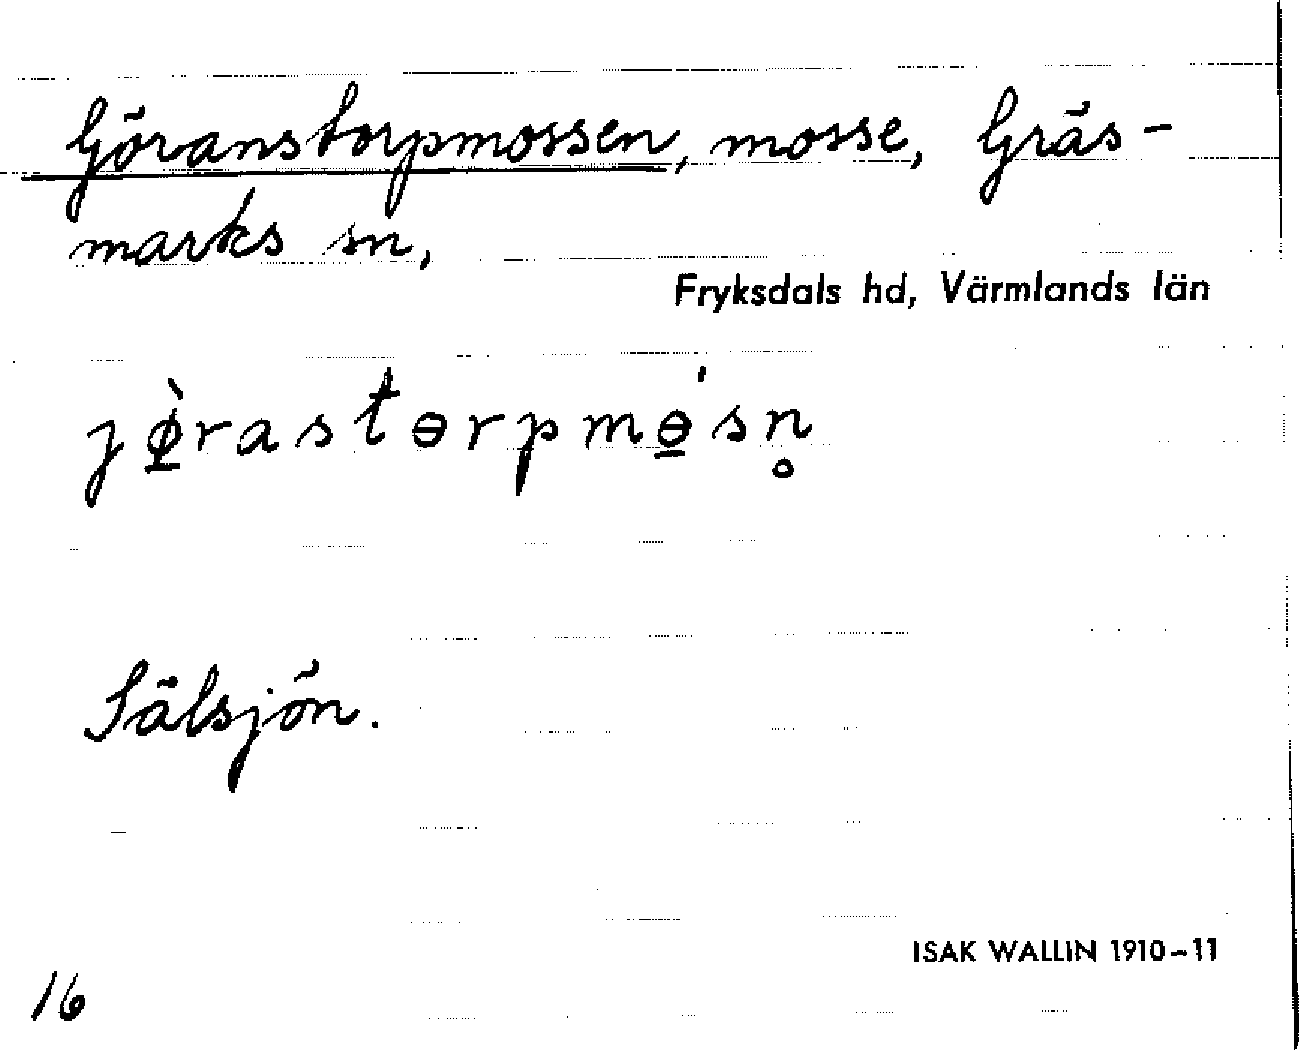 Göranstorpmossen, mosse, Gräs-
marks sn,
Fryksdals hd, Värmlands län
jø̱̀rastɵrpmɵ̱́sn̥
Sälsjön.
ISAK WALLIN 1910-11
16